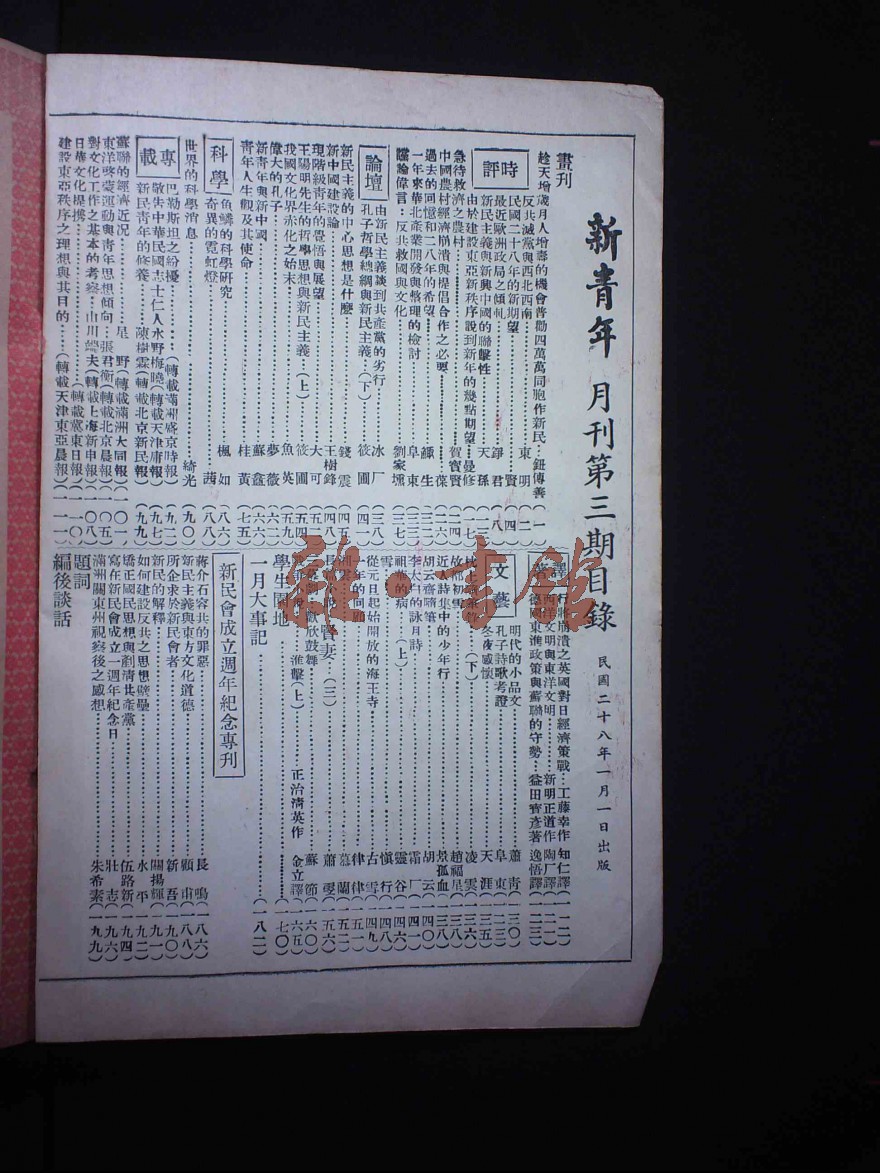 新青年 月刊第三期目錄
民國二十八年一月一日出版
畫刊
趁天增歲月人增壽的機會普勸四萬萬同胞作新民…鈕傳善(一)
時評
反共滅黨與西北西南…東明(二)
民國二十八年的新期望…賢(四)
最近歐洲政局之傾軋…錚君(八)
新民主義與新興中國的聯繫性…天孫(一三)
由於建設東亞新秩序說到新年的幾點期望…曼修(一七)
急待救濟之農村…賀寶賢
中國農村經濟崩潰與提倡合作之必要…葆
過去的回憶和二八年的希望…生(三三)
一年來華北產業開發與整理的檢討…阜東
讜論偉言:反共救國與文化…劉家壎(三七)
論壇
由新民主義談到共產黨的劣行…冰厂(三八)
孔子哲學總綱與新民主義…(下)…筱圃(四一)
新民主義的中心思想是什麼…錢震(四五)
新中國建設論…王樹鋒(四八)
現階級青年的覺悟與展望…大可(五二)
王陽明先生的哲學思想與新民主義…(上)…筱圃(五四)
我國文化界赤化之始末…魚英(五九)
偉大的孔子…夢薇(六二)
新青年與新中國…蘇鑫(六六)
青年人生觀及其使命…桂黃(七五)
科學
魚鱗的科學研究…楓如(八六)
奇異的霓虹燈…茜(八八)
世界的科學消息…綺光(九〇)
專載
巴勒斯坦之紛擾…(轉載滿洲盛京時報)(九二)
敬告中華民國志士仁人水野梅曉(轉載天津庸報)(九七)
新民青年的修養…陳樹霖(轉載北京新民報)(九九)
蘇聯的經濟近况…星野(轉載滿洲大同報)(一〇一)
東洋啓蒙運動與青年思想傾向…張君衡(轉載北京晨報)(一〇五)
對文化工作之基本的考察…山川端夫(轉載上海新申報)(一〇八)
日華文化提携…(轉載冀東日報)(一一〇)
建設東亞秩序之理想與其目的…(轉載天津東亞晨報)(一一一)
譯著
行將崩潰之英國對日經濟策戰…工藤幸作 知仁譯(一一二)
西洋文明與東洋文明…新明正道作 陶厂譯
德國東進政策與蘇聯的守勢…益田實彥著 逸悟譯(一二三)
文藝
明代的小品文…蕭青(一三〇)
孔子詩歌考證…阜東(一三三)
冬夜感懷…天涯(一三五)
(下)…凌雲(一三六)
故都初雪…趙福星(一三八)
近人詩集中的少年行…景孤血
胡云齋隨筆…胡云(一四〇)
李太白的詠月詩…霜厂(一四一)
祖華的病…(上)…靈谷(一四六)
雪…愼行(一四八)
從元旦起始開放的海王寺…古雪(一四九)
一年的回顧…律律(一五一)
慕蘭
賢妻…(三)…蕭璦(一五六)
歡欣鼓舞…蘇節(一六〇)
進擊(上)…正治清英作 金立譯(一六五)
學生園地…(一七〇)
一月大事記…(一八二)
新民會成立週年紀念專刊
蔣介石容共的罪惡…長鳴(一八六)
新民主義與東方文化道德…顧甫(一八八)
所企求於新民會者…新吾(一九〇)
新民的解釋…關揚輝(一九一)
如何建設反共之思想壁壘…水平(一九二)
矯正國民思想與剷清共產黨…伍路新(一九四)
寫在新民會成立一週年紀念日…壯志(一九六)
滿洲關東州視察後之感想…朱希素(一九九)
題詞
編後談話
雜·書館